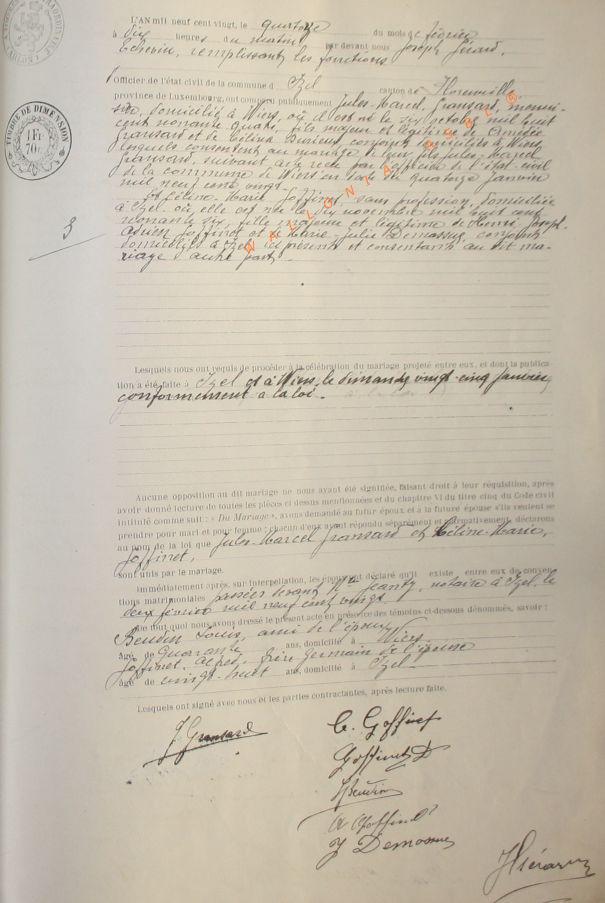 TIMBRE DE DIMENSION
1 Fr. 70c
3
L'AN mil neuf cent vingt, le quatorze du mois de février
à dix heures du matin par devant nous Joseph Gérard,
Echevin, remplissant les fonctions
Officier de l'état civil de la commune d'Izel canton de Florenville
province de Luxembourg, ont comparu publiquement Jules-Marcel Gransard, menui-
sier, domicilié à Wiers, où il est né le six octobre mil huit
cent nonante quatre, fils majeur et légitime de
Gransard et de Célina conjoints domiciliés à Wiers,
lesquels consentent au mariage de leur fils Jules-Marcel
Gransard, suivant acte reçu par l'officier de l'état-civil
de la commune de Wiers en date du quatorze janvier
mil neuf cent vingt.
Et Céline-Marie Goffinet, sans profession, domiciliée
à Izel où elle est née le dix novembre mil huit cent
nonante six, fille majeure et légitime de Henri-Joseph-
Adrien Goffinet et de Marie-Julie Demasius, conjoints
domiciliés à Izel, ici présents et consentants au dit ma-
riage d'autre part.
WALLONIA DELS
Lesquels nous ont requis de procéder à la célébration du mariage projeté entre eux, et dont la publica-
tion a été faite à Izel et à Wiers, le dimanche vingt-cinq janvier,
conformément à la loi.
Aucune opposition au dit mariage ne nous ayant été signifiée, faisant droit à leur réquisition, après
avoir donné lecture de toutes les pièces ci-dessus mentionnées et du chapitre VI du titre cinq du Code civil
intitulé comme suit : « Du Mariage », avons demandé au futur époux et à la future épouse s'ils veulent se
prendre pour mari et pour femme : chacun d'eux ayant répondu séparément et affirmativement, déclarons
au nom de la loi que Jules-Marcel Gransard et Céline-Marie
Goffinet,
sont unis par le mariage.
Immédiatement après, sur interpellation, les époux ont déclaré qu'il existe entre eux de conven-
tions matrimoniales passées devant Me Jeanty, notaire à Izel, le
deux février mil neuf cent vingt
De tout quoi nous avons dressé le présent acte en présence des témoins ci-dessous dénommés, savoir :
Beudin Louis, ami de l'époux
âgé de quarante ans, domicilié à Wiers
Goffinet Alfred, frère germain de l'épouse
âgé de vingt-huit ans, domicilié à Izel
Lesquels ont signé avec nous et les parties contractantes, après lecture faite.
J Gransard
C. Goffinet
Goffinet D
Beudin
A Goffinet
J Demasius
J Gérard